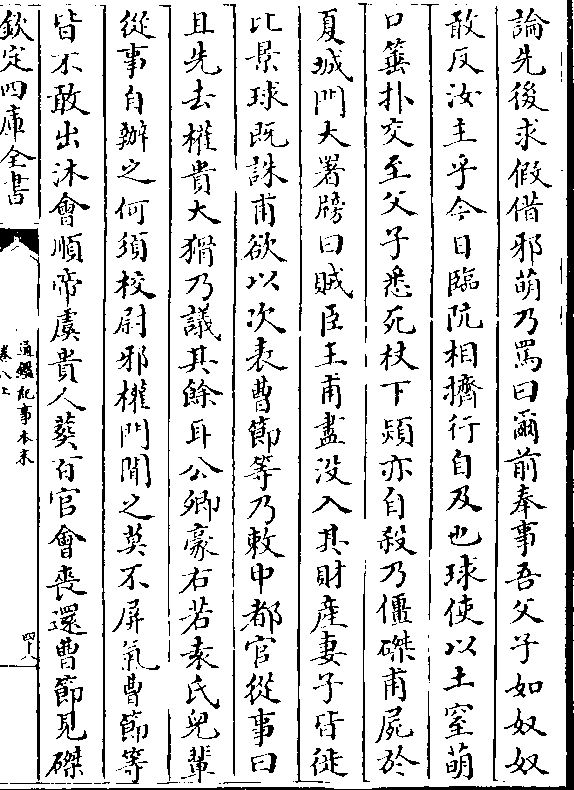 論先後求假借邪萌乃罵曰爾前奉事吾父子如奴奴
敢反汝主乎今日臨阬相擠行自及也球使以土窒萌
口箠扑交至父子悉死杖下熲亦自殺乃僵磔甫屍於
夏城門大署牓曰賊臣王甫盡没入其財產妻子皆徙
比景球既誅甫欲以次表曹節等乃敕中都官從事曰
且先去權貴大猾乃議其餘耳公卿豪右若袁氏兒輩
從事自辦之何須校尉邪權門聞之莫不屏氣曹節等
皆不敢出沐會順帝虞貴人葬百官會喪還曹節見磔
欽定四庫全書
通鑑紀事本末
卷八上
四十八